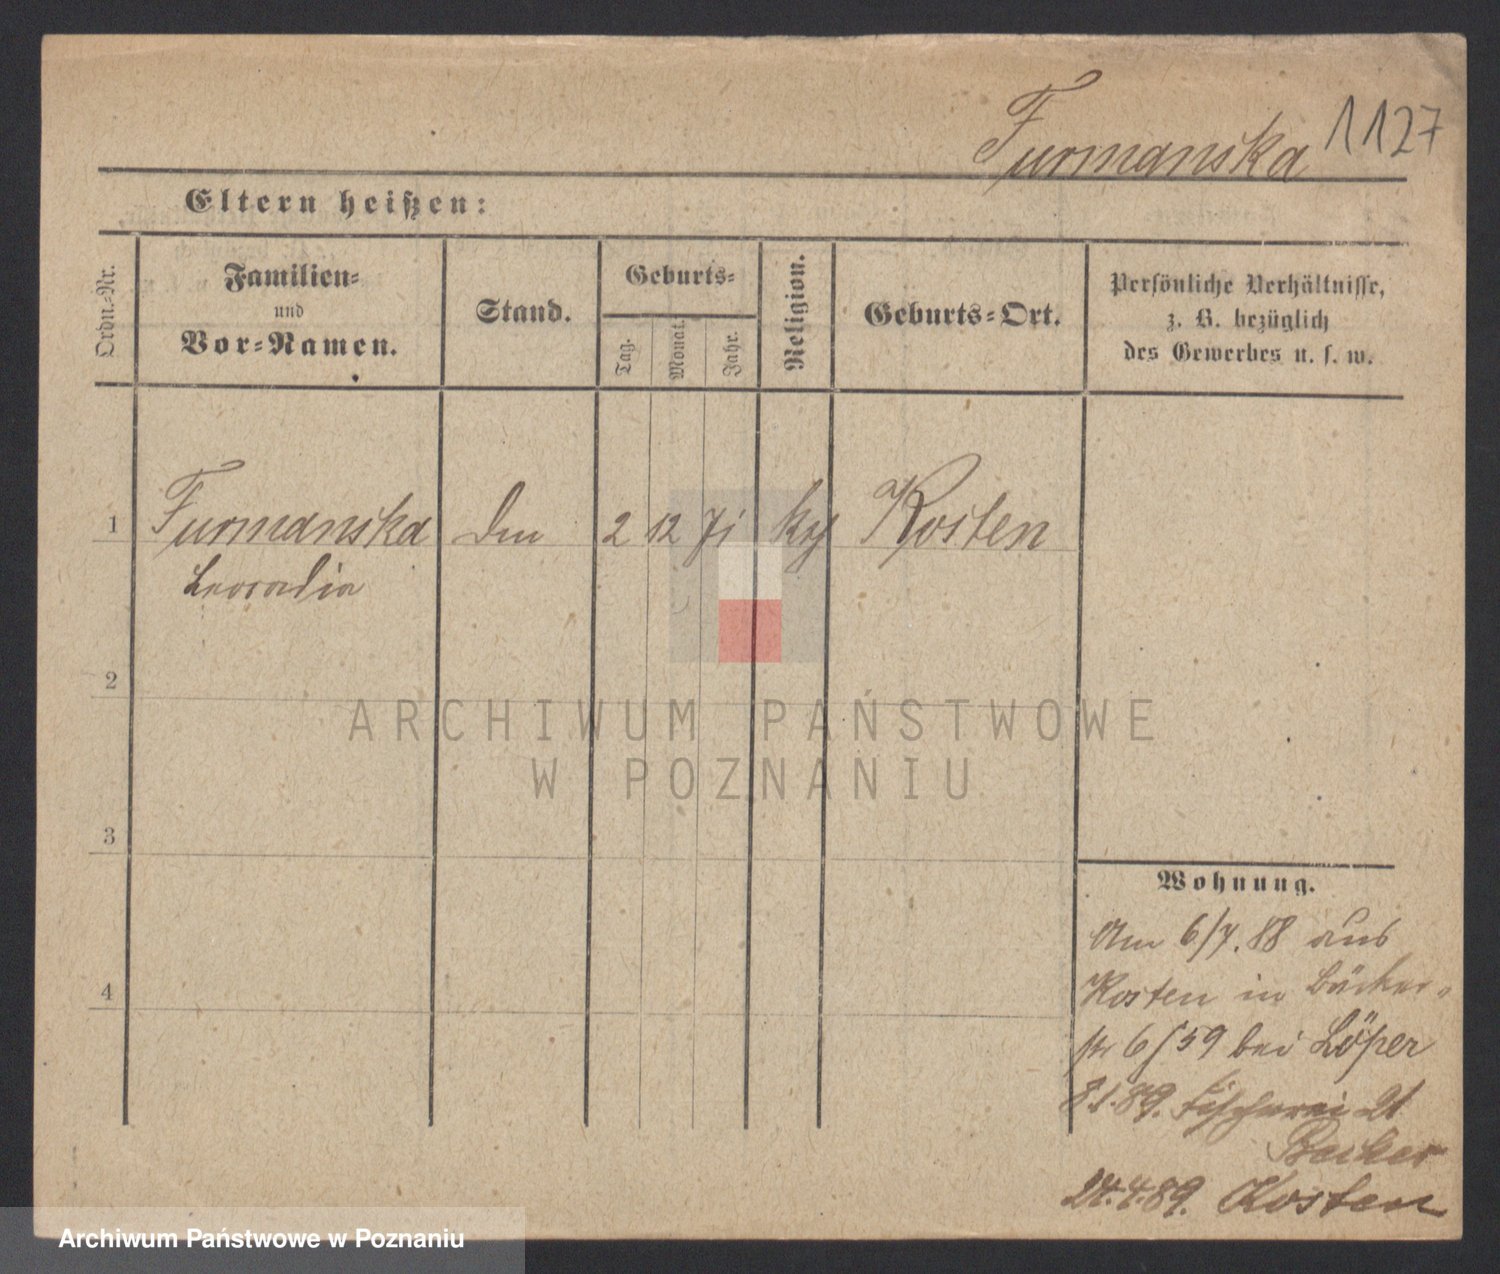 Furmanska 1127
Eltern heißen:
Ordn.-Nr.
Familien-
und
Vor-Namen.
Stand.
Geburts-
Tag.
Monat.
Jahr.
Religion.
Geburts-Ort.
Persönliche Verhältnisse,
z. B. bezüglich
des Gewerbes u. s. w.
1 Furmanska 2 12 71 Kosten
Leocadia
2
3
4
ARCHIWUM PAŃSTWOWE
W POZNANIU
Wohnung.
Am 6/7. 88 aus
Kosten in Bäcker-
str 6/59 bei Löper
8.1.89. Fischerei 21
Becker
24.4.89. Kosten
Archiwum Państwowe w Poznaniu